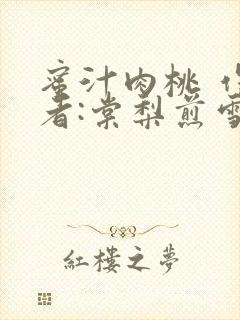 蜜汁肉桃
者:棠梨煎雪
紅樓之夢